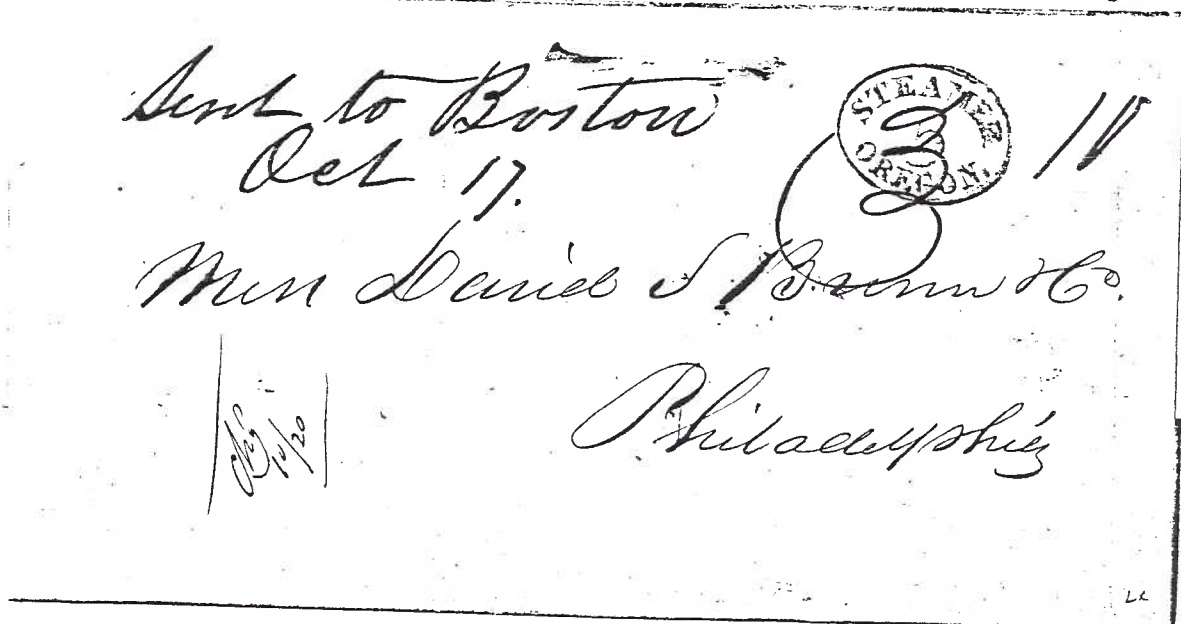 Sent to Boston
Oct 17.
STEAMER
2
OREGON.
Mess David S Brown & Co.
Philadelphia
10/20